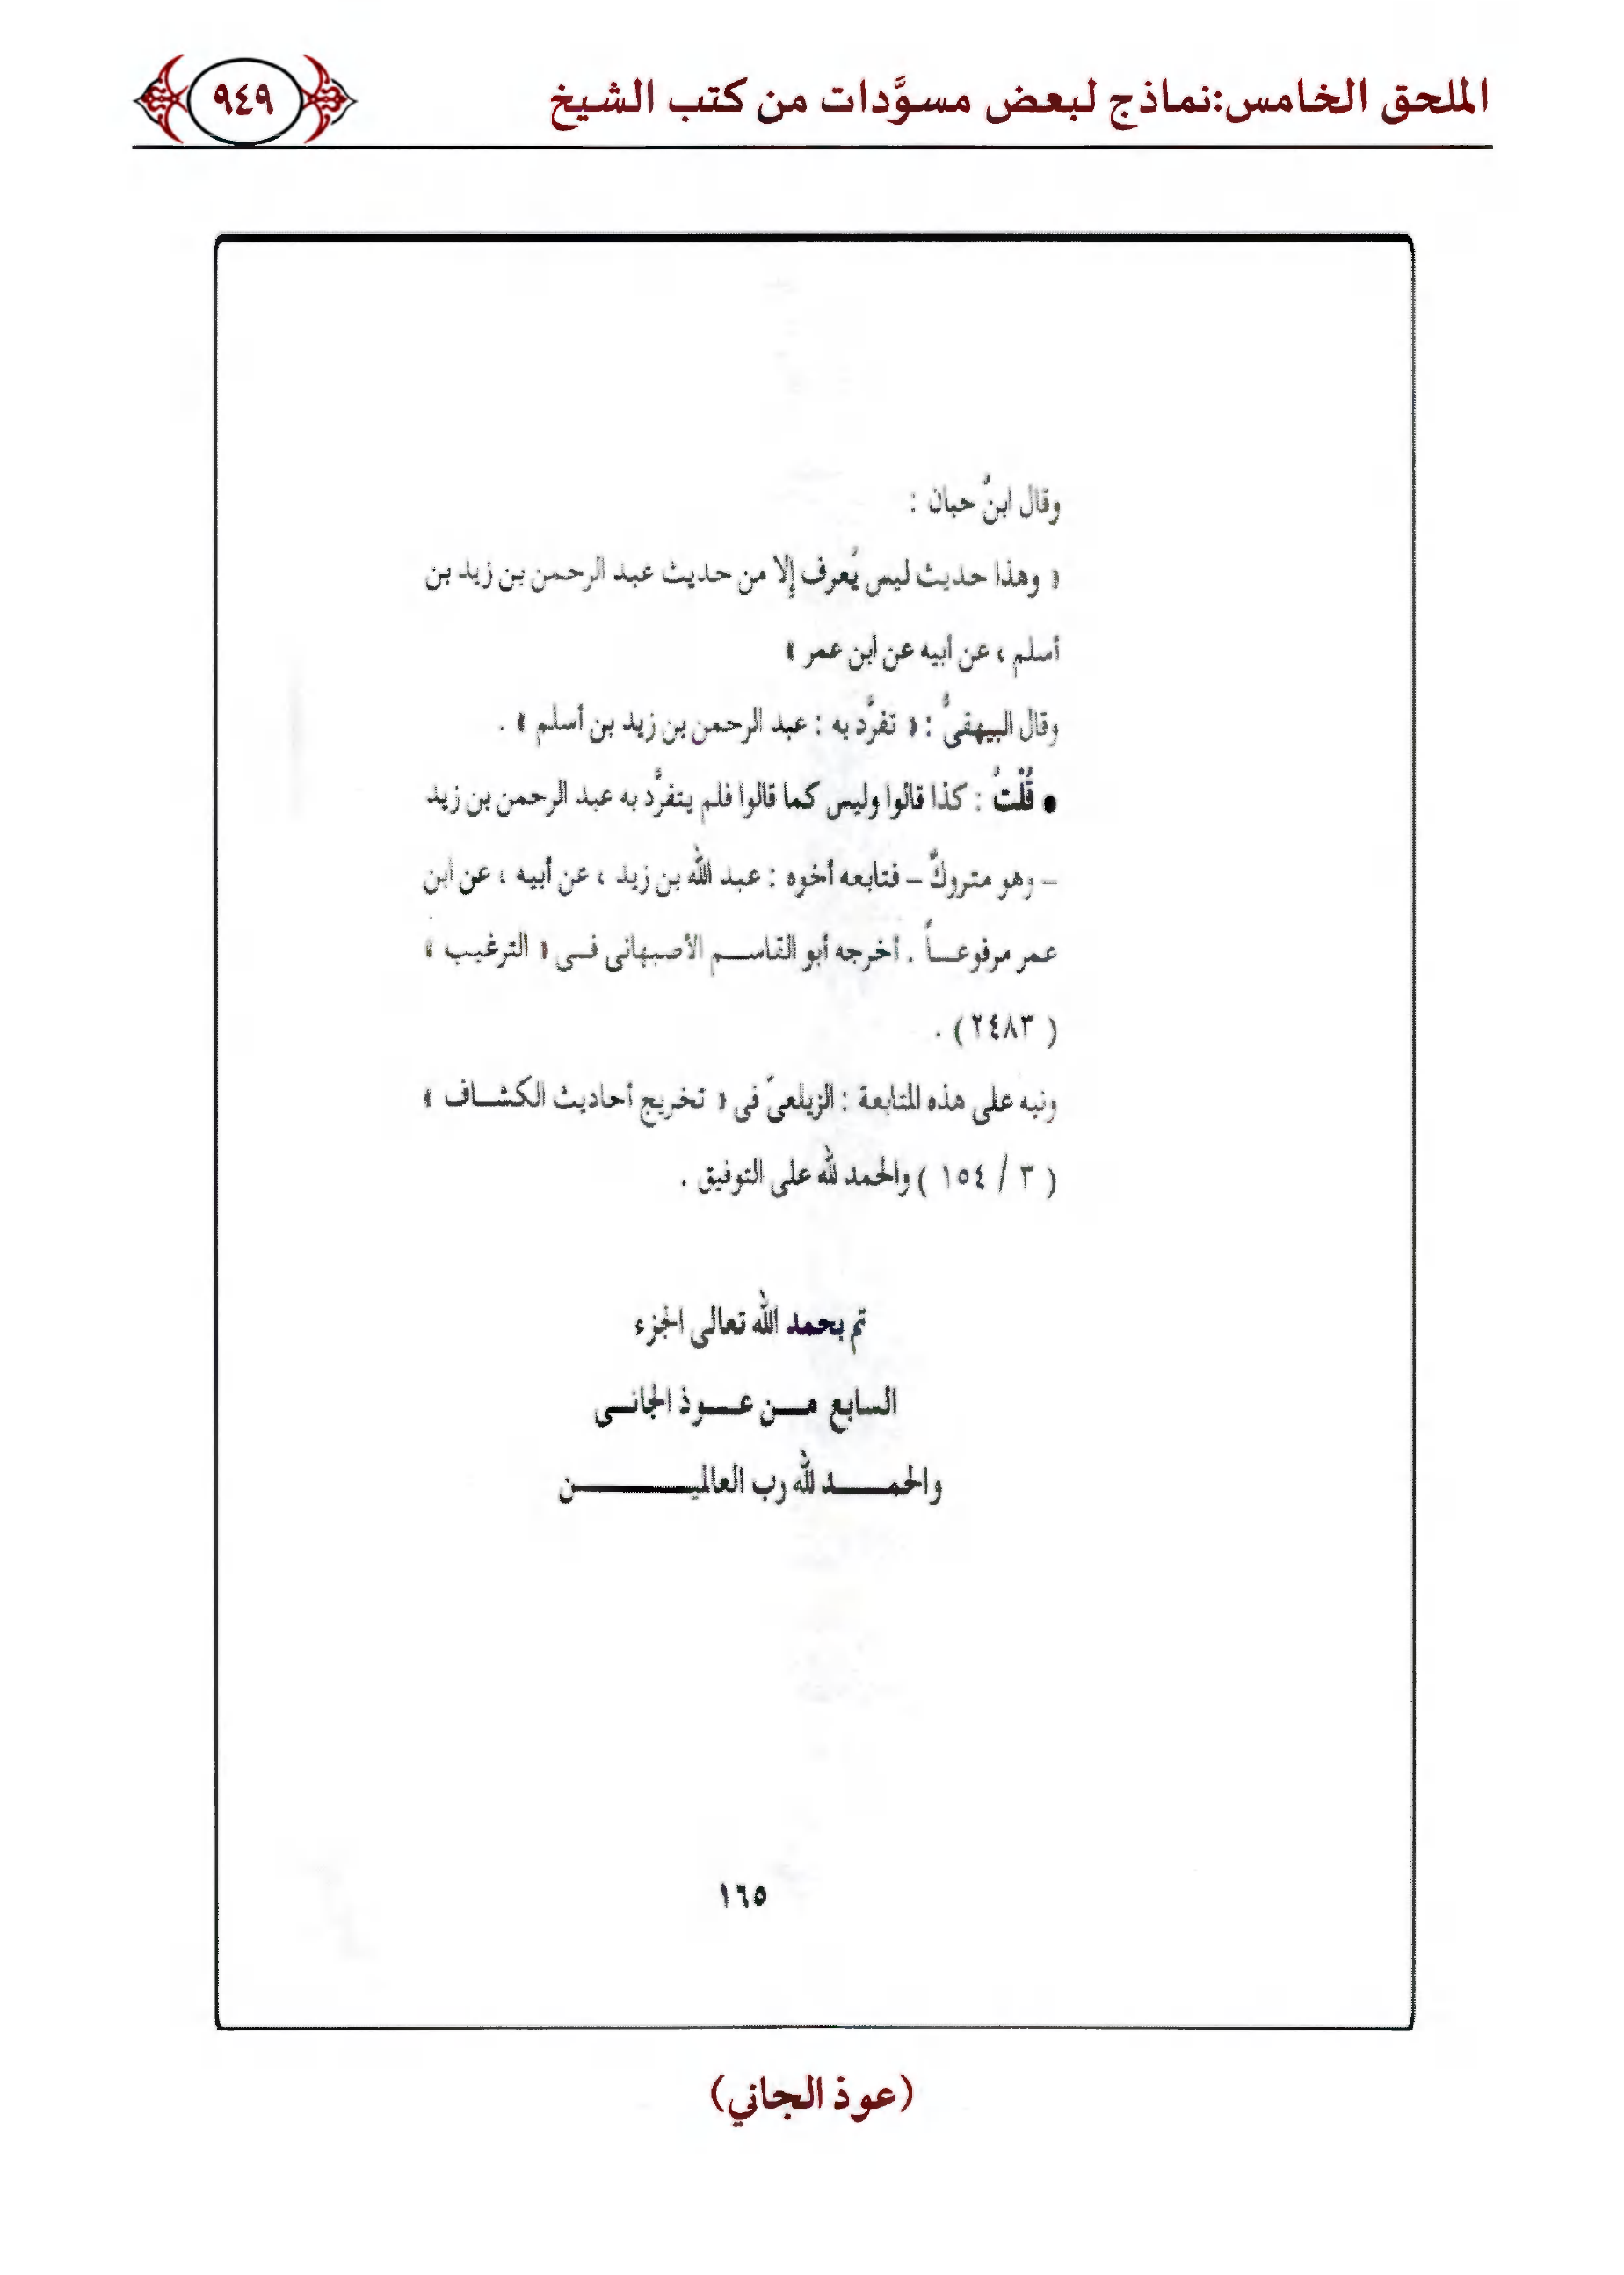 الملحق الخامس:نماذج لبعض مسوَّدات من كتب الشيخ
٩٤٩
وقال ابنُ حبان :
« وهذا حديث ليس يُعرف إلا من حديث عبد الرحمن بن زيد بن
أسلم ، عن أبيه عن ابن عمر »
وقال البيهقىُّ : « تفرَّد به : عبد الرحمن بن زيد بن أسلم » .
• قُلْتُ : كذا قالوا وليس كما قالوا فلم يتفرَّد به عبد الرحمن بن زيد
– وهو متروكٌ – فتابعه أخوه : عبد الله بن زيد ، عن أبيه ، عن ابن
عمر مرفوعـاً . أخرجه أبو القاسـم الأصبهانى فـى « الترغيب »
( ٢٤٨٣ ) .
ونبه على هذه المتابعة : الزيلعىّ فى « تخريج أحاديث الكشـاف »
( ٣ / ١٥٤ ) والحمد لله على التوفيق .
تم بحمد الله تعالى الجزء
السابع مـن عـوذ الجانـى
والحمــد لله رب العالميــــن
١٦٥
(عوذ الجاني)